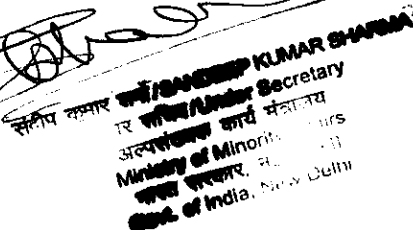 संदीप कुमार शर्मा/SANDEEP KUMAR SHARMA
सचिव/Under Secretary
अल्पसंख्यक कार्य मंत्रालय
Ministry of Minority
भारत सरकार,
Govt. of India, New Delhi